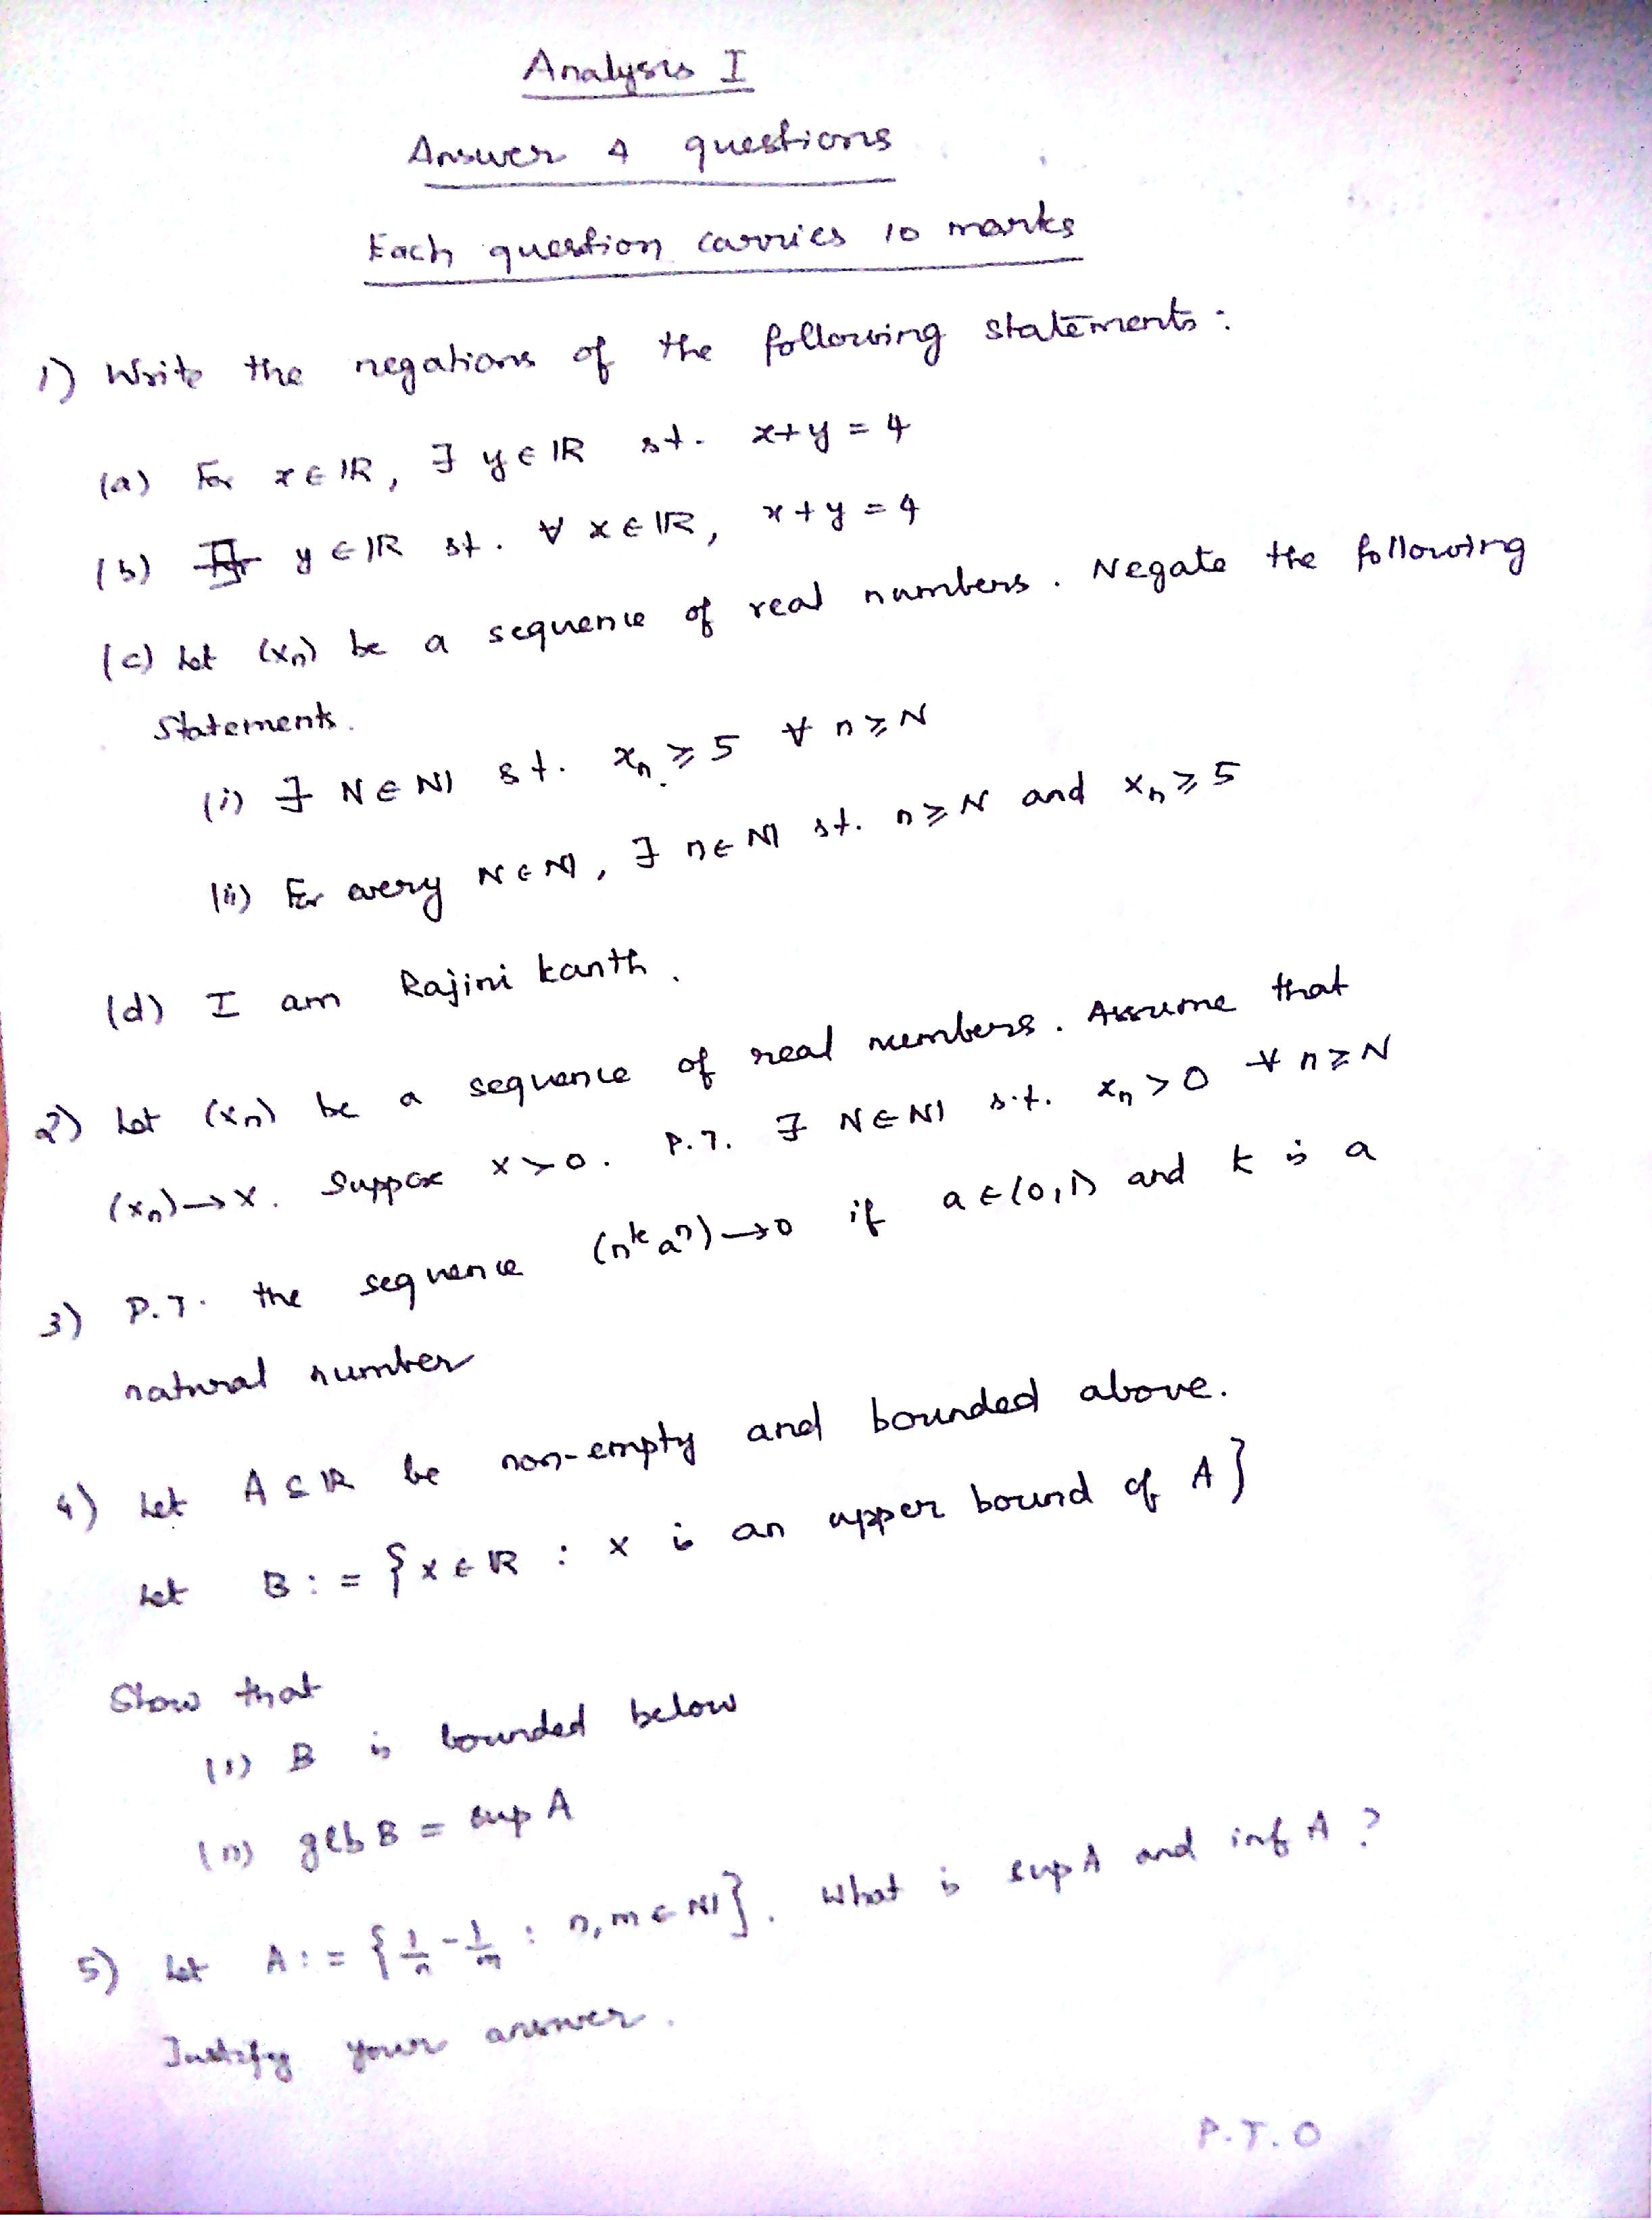 Analysis I
Answer 4 questions
Each question carries 10 marks
1) Write the negations of the following statements :
(a) For x ∈ ℝ, ∃ y ∈ ℝ st. x+y = 4
(b) ∃ y ∈ ℝ st. ∀ x ∈ ℝ, x+y = 4
(c) Let (xₙ) be a sequence of real numbers. Negate the following
Statements.
(i) ∃ N ∈ ℕ s t. xₙ ≥ 5 ∀ n ≥ N
(ii) For every N ∈ ℕ, ∃ n ∈ ℕ st. n ≥ N and xₙ ≥ 5
(d) I am Rajini kanth.
2) Let (xₙ) be a sequence of real numbers. Assume that
(xₙ) → x. Suppose x > 0. P.T. ∃ N ∈ ℕ s.t. xₙ > 0 ∀ n ≥ N
3) P.T. the sequence (nᵏaⁿ) → 0 if a ∈ (0,1) and k is a
natural number
4) Let A ⊆ ℝ be non-empty and bounded above.
Let B := {x ∈ ℝ : x is an upper bound of A}
Show that
(i) B is bounded below
(ii) glb B = sup A
5) Let A := {1/n - 1/m : n, m ∈ ℕ}. What is sup A and inf A ?
Justify your answer.
P.T.O